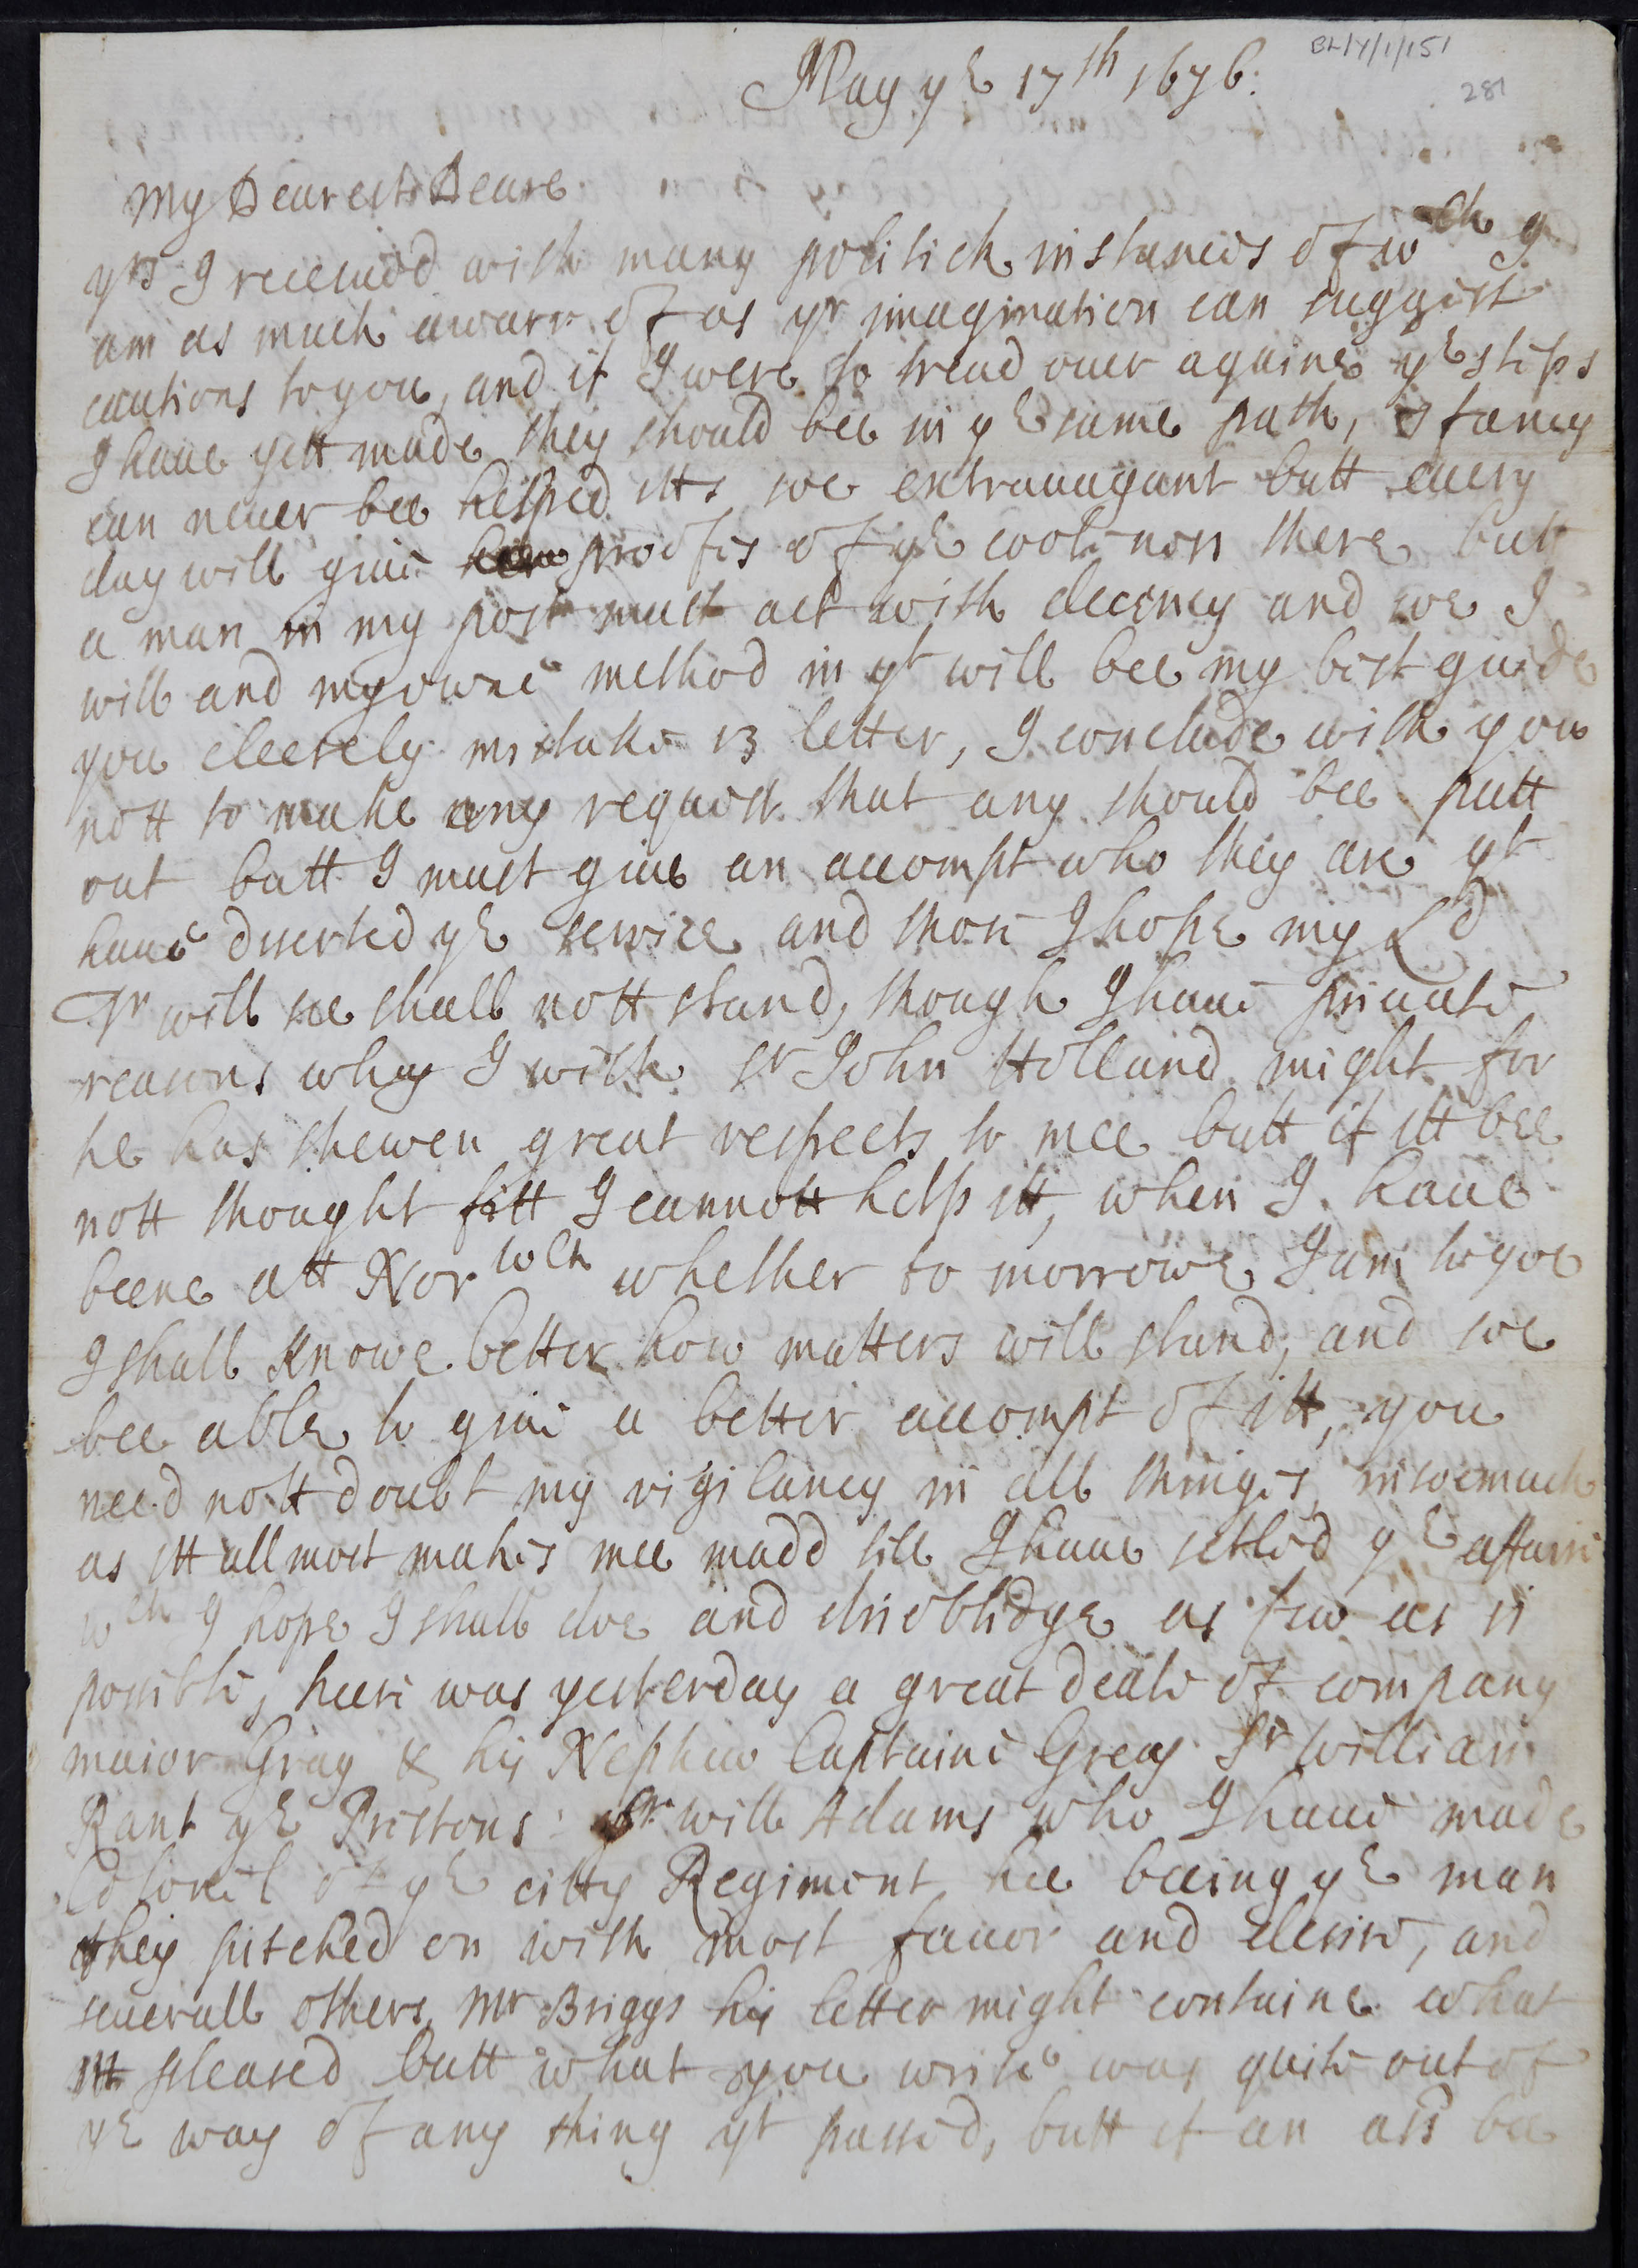 BL/Y/1/151
281
May ye 17th 1676:
My Dearest Deare
yrs I receiued with many politick instances of wch I
am as much awarr of as yr imagination can suggest
cautions to you, and if I were to tread ouer againe ye steps
I haue yett made they should bee in ye same path, fancy
can neuer bee helped itts soe extrauagant butt euery
day will giue proofes of ye coolenes there butt
a man in my post must act with decency and soe I
will and my owne method in yt will bee my best guide
you cleerely mistake 13 letter, I conclude with you
nott to make any request that any should bee putt
out butt I must giue an accompt who they are yt
haue deserted ye seruice and thos I hope my Ld
Tr will see shall nott stand, though I haue priuate
reasons why I wish Sr John Holland might for
he has shewen great respects to mee butt if itt bee
nott thought fitt I cannott help itt, when I haue
beene att Norwch whether to morrowe I am to goe
I shall knowe better how matters will stand, and soe
bee able to giue a better accompt of itt, you
need nott doubt my vigilancy in all things, insoemuch
as itt allmost makes mee madd till I haue setled ye affaire
wch I hope I shall doe and disoblidge as few as is
possible, heere was yesterday a great deale of company
maior Gray & his Nephew Captaine Grey Sr William
Rant ye Prestons Sr Will Adams who I haue made
Colonel of ye citty Regiment hee beeing ye man
they pitched on with most fauor and desire, and
seuerall others, Mr Briggs his letter might containe what
itt pleased butt what you write was quite out of
ye way of any thing yt passed, butt if an ass bee